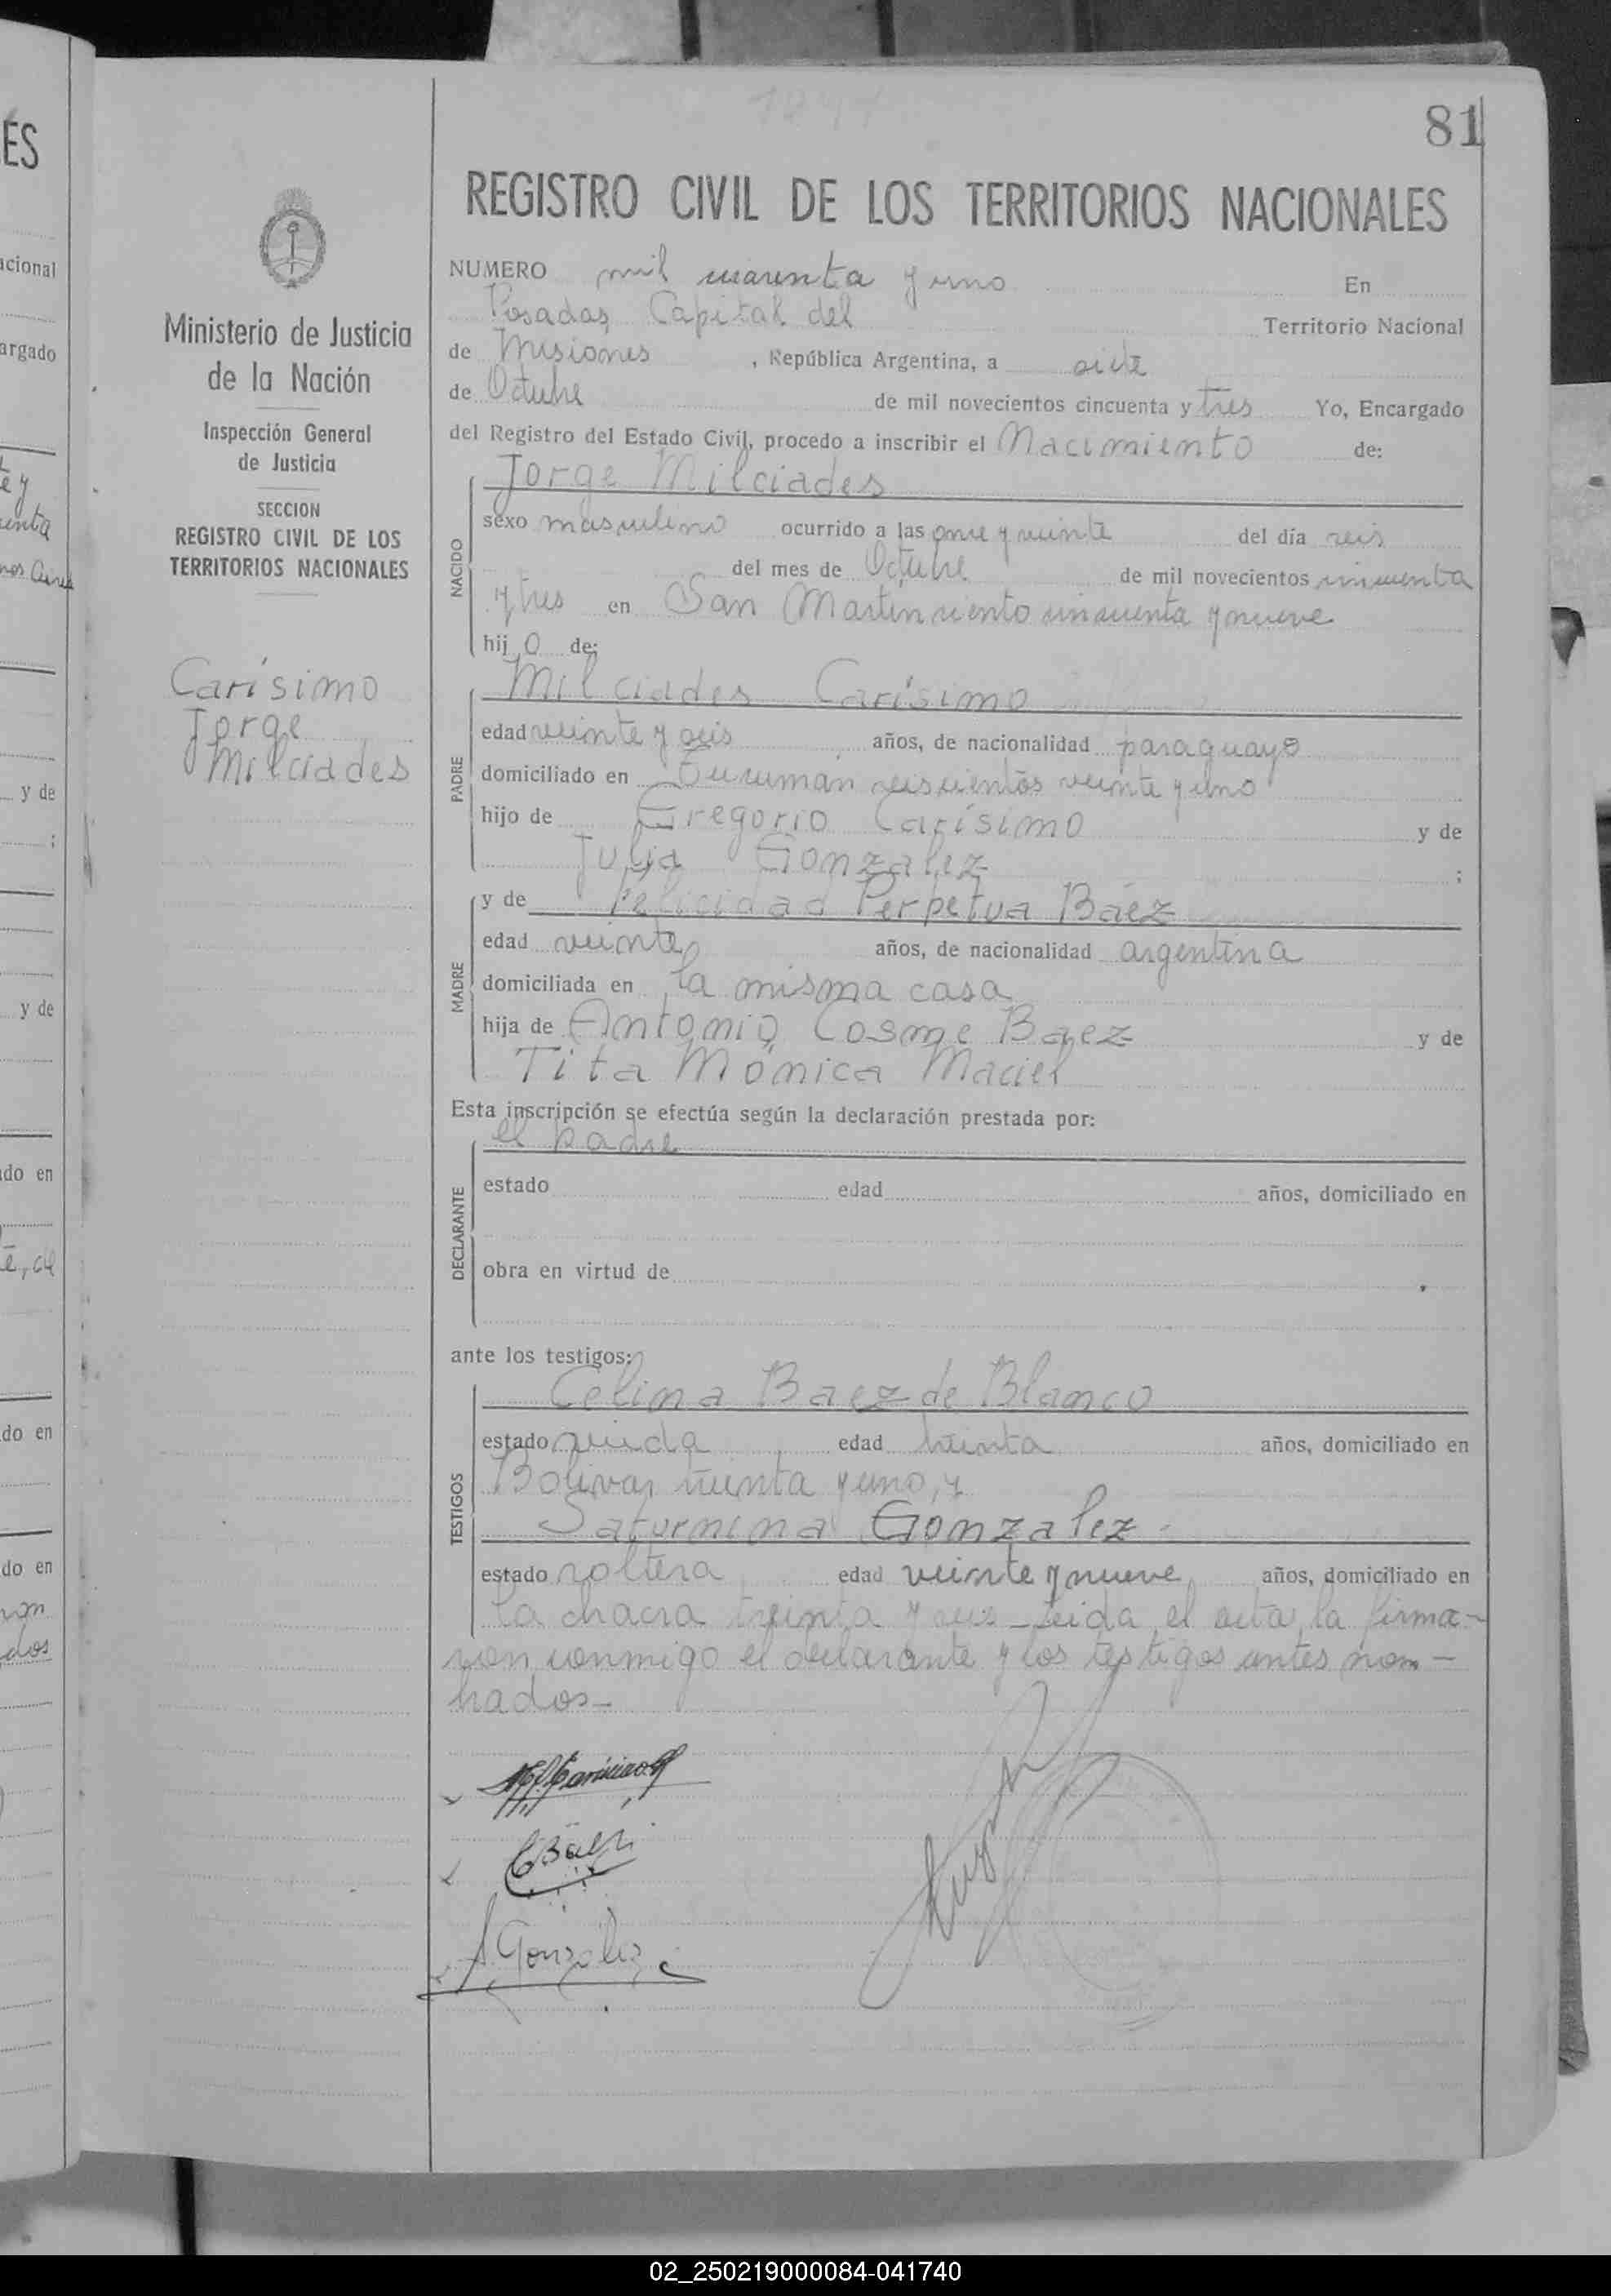 81
REGISTRO CIVIL DE LOS TERRITORIOS NACIONALES
Ministerio de Justicia
de la Nación
Inspección General
de Justicia
SECCION
REGISTRO CIVIL DE LOS
TERRITORIOS NACIONALES
Carísimo
Jorge
Milciades
NUMERO mil cuarenta y uno En
Posadas, Capital del Territorio Nacional
de Misiones, República Argentina, a siete
de Octubre de mil novecientos cincuenta y tres Yo, Encargado
del Registro del Estado Civil, procedo a inscribir el Nacimiento de:
Jorge Milciades
NACIDO
sexo masculino ocurrido a las once y veinte del día seis
del mes de Octubre de mil novecientos cincuenta
y tres en San Martín ciento cincuenta y nueve
hij o de:
Milciades Carísimo
PADRE
edad veinte y seis años, de nacionalidad paraguayo
domiciliado en Tucumán seiscientos veinte y uno
hijo de Gregorio Carísimo y de
Julia Gonzalez ;
y de Felicidad Perpetua Báez
MADRE
edad veinte años, de nacionalidad argentina
domiciliada en la misma casa
hija de Antonio Cosme Baez y de
Tita Mónica Maciel
Esta inscripción se efectúa según la declaración prestada por:
el padre
DECLARANTE
estado edad años, domiciliado en
obra en virtud de .
ante los testigos:
Celina Baez de Blanco
TESTIGOS
estado viuda edad treinta años, domiciliado en
Bolivar treinta y uno, y
Saturnina Gonzalez.
estado soltera edad veinte y nueve años, domiciliado en
la chacra treinta y seis - leida el acta, la firma-
ron conmigo el declarante y los testigos antes nom-
brados-
CBáez
S. Gonzalez
ES
acional
argado
y de
;
y de
do en
do en
do en
02_250219000084-041740